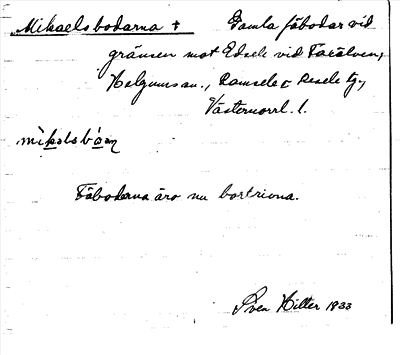 Mikaelsbodarna † Gamla fäbodar vid
gränsen mot Edsele vid Faxälven,
Helgums sn., Ramsele o Resele tg.,
Västernorrl. l.
mìkəlsbò̱ɑɳ
Fäboderna äro nu bortrivna.
Sven Hitter 1933